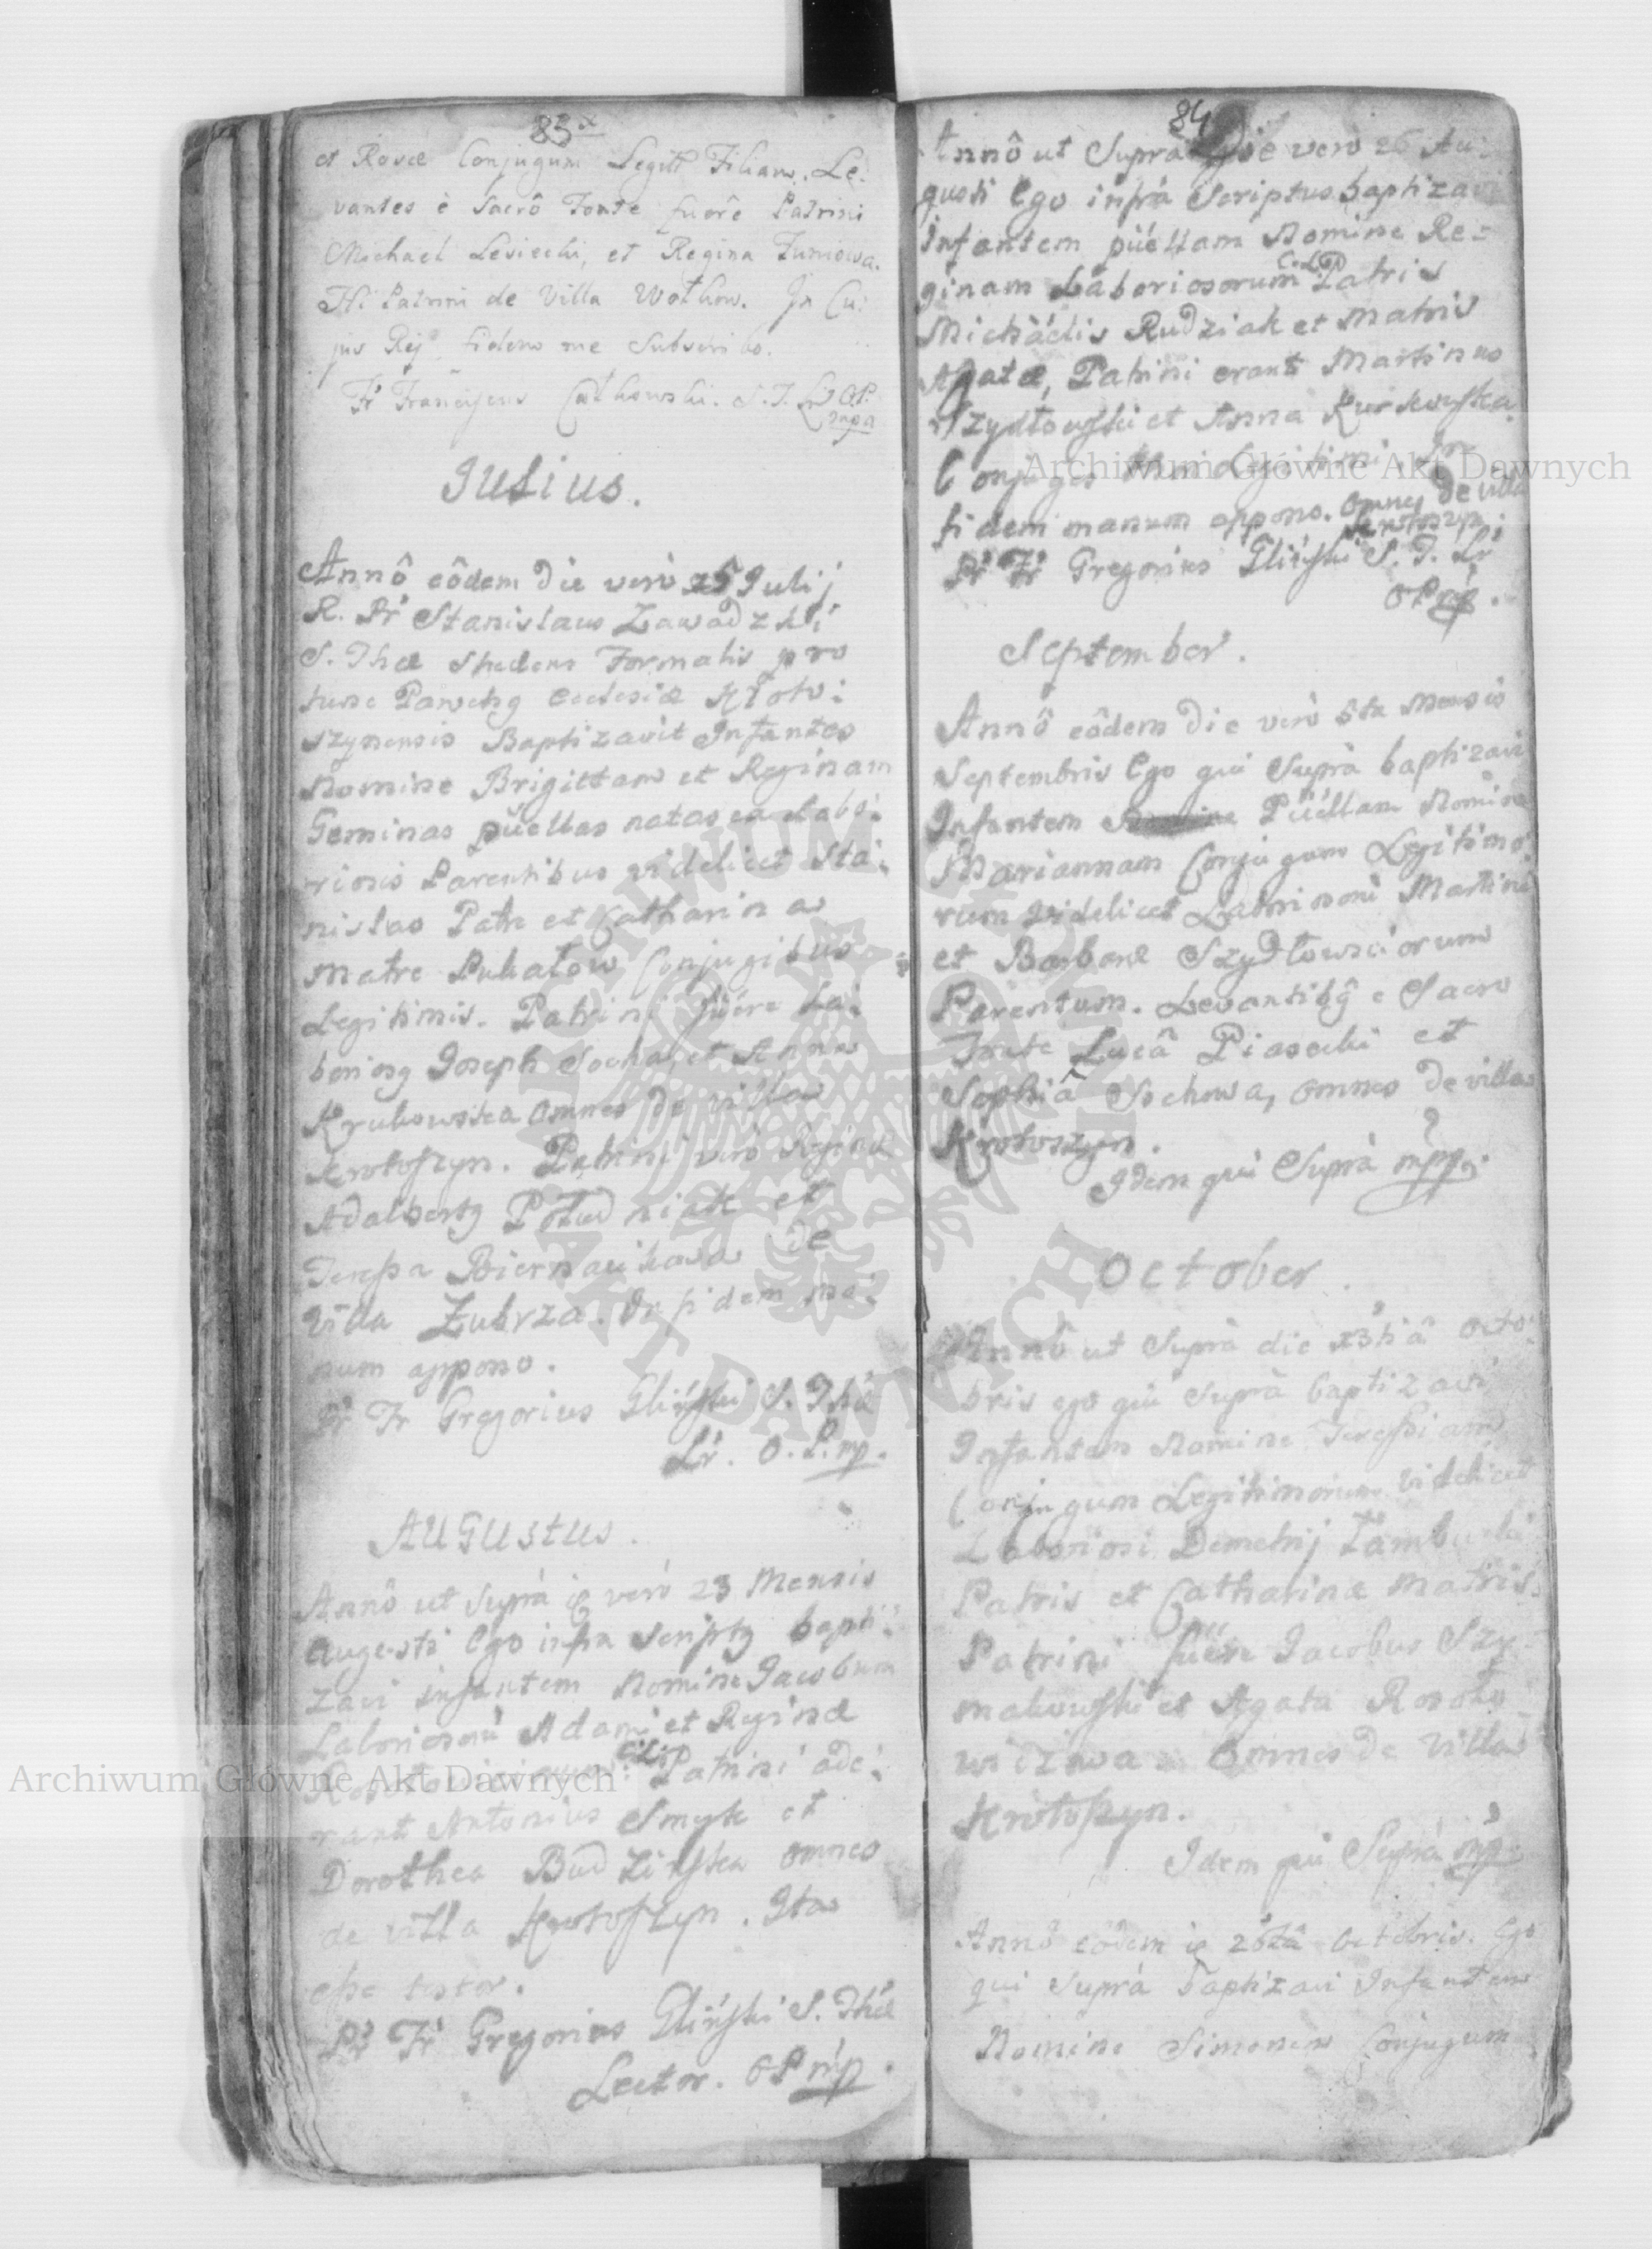 83
et Rosae Conjugum Legitt Filiam. Le:
vantes è Sacrô Fonte fuerê Patrini
Michael Lesiecki, et Regina Juniowa.
Hi Patrini de Villa Wothow. In Cu:
jus Rej fidem me Subscribo.
Fr Franciscus S. T. Lr OP.
mpa
Julius.
Annô eôdem die verò 25 Julij
R. Pr Stanislaus Zawadzki
S. Thae Studens Formalis pro
tunc Ecclesiae Kroto:
szynensis Baptizavit Infantes
Nomine Brigittam et Reginam
Geminas püellas natas ex labo:
riosis Parentibus videlicet Sta:
nislao Patre et Catharina
Matre Pukałow Conjugibus
Legitimis. Patrini fuêre La:
boriosg Joseph Socha, et Anna
Krukowska omnes de villa
Krotoszyn. Patrini verò Reginae
Adalbertg Południak et
Teressa Biernacikowa de
Villa Zubrza. In fidem Ma:
num appono.
Pr Fr Gregorius Gliński S. Thae
Lr. O. P. mp.
AUGUSTUS.
Annô ut Suprà ie verò 23 Mensis
Augusti Ego infra Scriptg bapti:
zavi infantem Nomine Jacobum
Laboriosorù Adami et Reginae
C. L. Patrini ade:
rant Antonius Smyk et
Dorothea Budzińska omnes
de villa Krotoszyn. Ita
esse testor.
Pr Fr Gregorius Gliński S. Thae
Lector. OP mp.
84
Annô ut Suprà die verò 26 Au:
gusti Ego infrà Scriptus baptizavi
Infantem püellam Nomine Re:
ginam Laboriosorum C. L. Patris
Michàelis Rudziak et Matris
Agatae, Patrini erant Martinus
Szydłowski et Anna Kurkowska
Conjuges In
fidem manum appono. Omnes de villa
Krotoszyn
Pr Fr Gregorius Gliński S. T. Lr
OP mp.
September.
Annô eôdem die verò 5ta Mensis
Septembris Ego qui Suprà baptizavi
Infantem Püéllam Nomine
Mariannam Conjugum Legitimo:
rum Videlicet Laboriosorù Martini
et Barbarae Szydłowsciorum
Parentum. Levantibg e Sacro
Fonte Lucâ Piasecki et
Sophiâ Sochowa, omnes de villa
Krotoszyn.
Idem qui Suprà mp.
October.
Annô ut Suprà die 13tiâ Octo:
bris ego qui Suprà baptizavi
Infantem Nomine Teressiam
Conjugum Legitimorum Videlicet
Laboriosi Demetrij
Patris et Catharinae Matris.
Patrini fuêre Jacobus Szy:
makowski et Agata Rosoło:
wiczowa Omnes de Villa
Krotoszyn.
Idem qui Suprà mp.
Annô eôdem ie 26tâ Octobris. Ego
qui Suprà baptizavi Infantem
Nomine Simonem Conjugum
Archiwum Główne Akt Dawnych
Archiwum Główne Akt Dawnych
ARCHIWUM GŁÓWNE AKT DAWNYCH